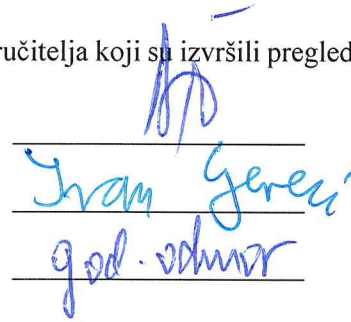 ručitelja koji su izvršili pregled
Ivan
god. odmor